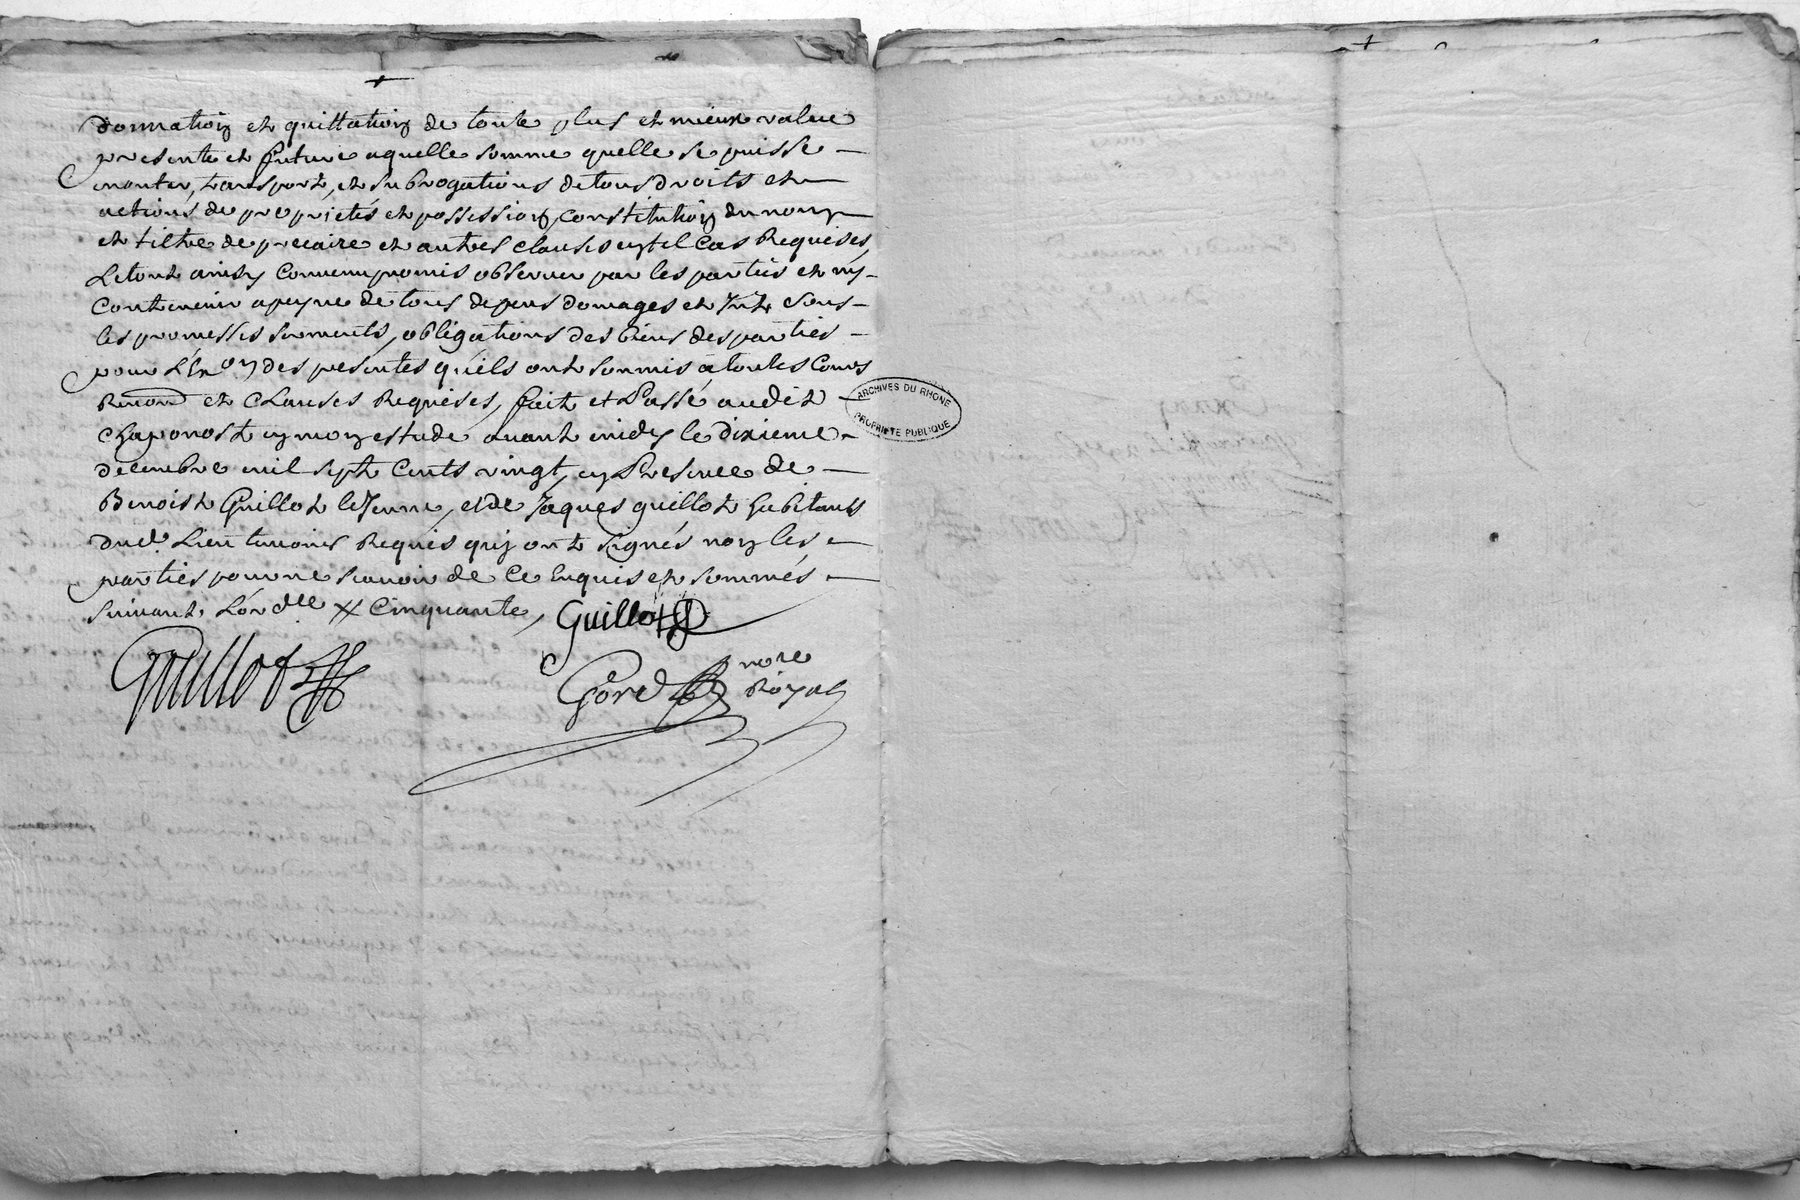 donnation et quittation de toute plus et mieux value
presente et future aquelle somme quelle se puisse
monter, transport, et subrogations de tous droits et
actions de proprietés et possession, constitution du nom
et tiltre de precaire et autres clauses en tel cas Requises,
Le tout ainsy convenu promis observer par les parties et ny
Contrevenir a peyne de tous depens domages et Intz sous
les promesses serments, obligations des biens des parties
pour L'Exon des presentes qu'ils ont soumis a toutes Cours
Renond et Clauses Requises, fait et Passé audit
Chaponost en mon estude avant midy le dixieme
decembre mil sept Cents vingt, en Presence de
Benoist Guillot le Jeune, et de Jaques guillot habitants
dud. Lieu temoins Requis quy ont signés non les
parties pour ne sçavoir de Ce Enquis et sommés
suivant L'ordce Cinquante, Guillot
Guillot
nore
Royal
ARCHIVES DU RHONE
PROPRIETE PUBLIQUE